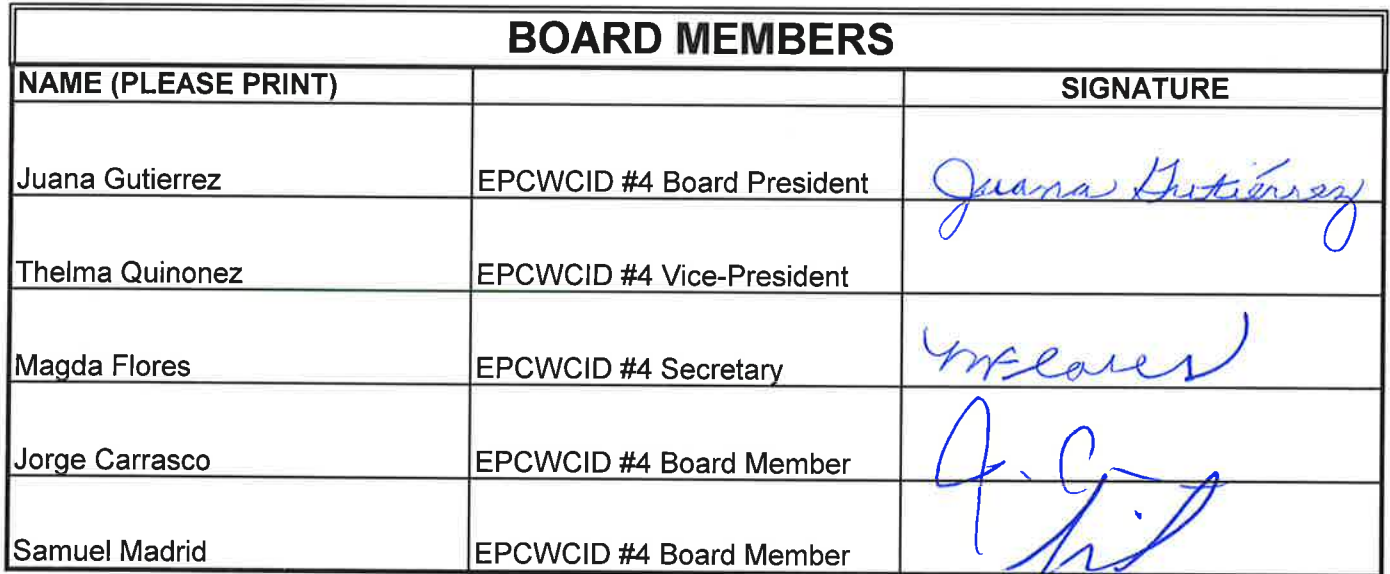 BOARD MEMBERS
NAME (PLEASE PRINT) SIGNATURE
Juana Gutierrez EPCWCID #4 Board President Juana Gutiérrez
Thelma Quinonez EPCWCID #4 Vice-President
Magda Flores EPCWCID #4 Secretary MFlores
Jorge Carrasco EPCWCID #4 Board Member J. C
Samuel Madrid EPCWCID #4 Board Member